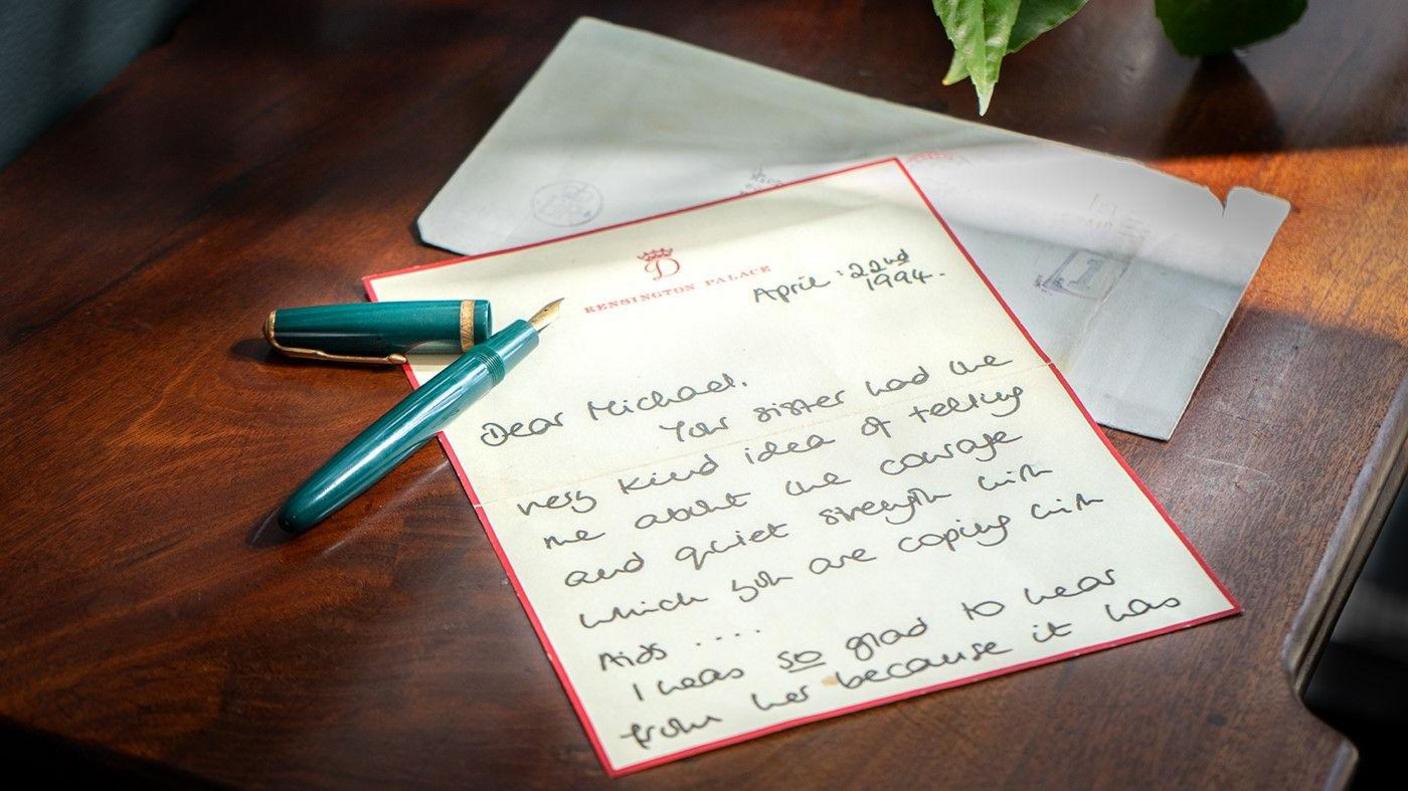 D
KENSINGTON PALACE
April 22nd
1994.
Dear Michael,
Your sister had the
very kind idea of telling
me about the courage
and quiet strength with
which you are coping with
Aids ....
I was so glad to hear
from her because it has